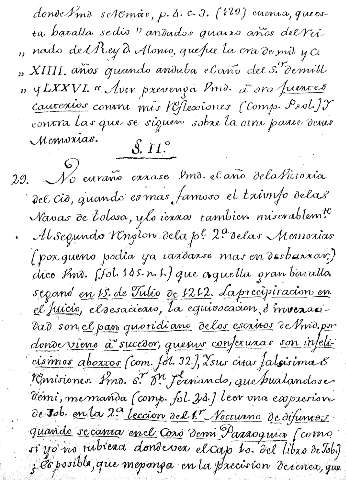 donde Vmd se remite, p. 4. c. 3. (129) cuenta, que es-
ta batalla se dió " andados quatro años del Rei-
" nado de el Rey D. Alonso, que fue la era de mil y C
" XIIII. años quando andaba el año del S.or de mill
" y LXXVI. " Aver prevenga Vmd. à otro fuertes
cauterios contra mis Reflexiones (Comp. Prol.) Y
contra las que se siguen sobre la otra parte de sus
Memorias.
§. II.º
29. No extraño errase Vmd. el año de la Victoria
del Cid, quando es mas famoso el triunfo de las
Navas de Tolosa, y lo ierra tambien miserablem.te
Al segundo renglon de la p.e 2.ª de las Memorias
(porque no podia ya tardarse mas en desbarrar,)
dice Vmd. (fol. 145. n. 1.) que aquella gran batalla
se ganó en 15. de Julio de 1212. La precipitacion en
el Juicio, el desacierto, la equivocacion, è inveraci-
dad son el pan quotidiano de los escritos de Vmd. por
donde viene à suceder, que sus conjeturas son infeli-
cisimos abortos (com. fol. 32.), Y sus citas falsisimas
remisiones. Vmd. S.r D.n Fernando, que burlandose
de mi, me manda (comp. fol. 24.) leer una expresion
de Job. en la 2.ª leccion del 1.r Nocturno de difuntos
quando se canta en el Coro de mi Parroquia (como
si yo no tubiera donde ver el Cap. 10. del libro de Job)
¿ Es posible, que me ponga en la precision de creer, que